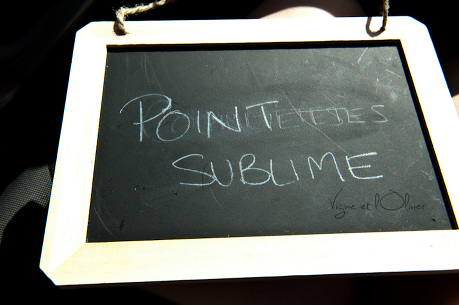 POINTETTES
SUBLIME
Vigne et l'Olivier